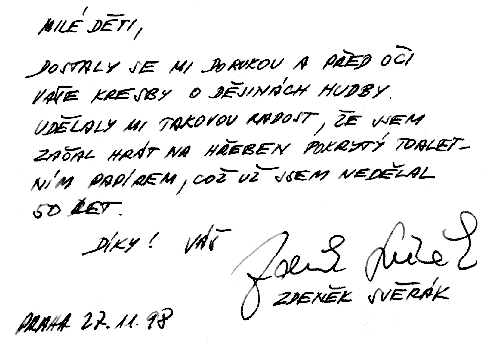 MILÉ DĚTI,
DOSTALY SE MI DO RUKOU A PŘED OČI
VAŠE KRESBY O DĚJINÁCH HUDBY.
UDĚLALY MI TAKOVOU RADOST, ŽE JSEM
ZAČAL HRÁT NA HŘEBEN POKRYTÝ TOALET-
NÍM PAPÍREM, COŽ UŽ JSEM NEDĚLAL
50 LET.
DÍKY! VÁŠ
Zdeněk Svěrák
ZDENĚK SVĚRÁK
PRAHA 27.11.98